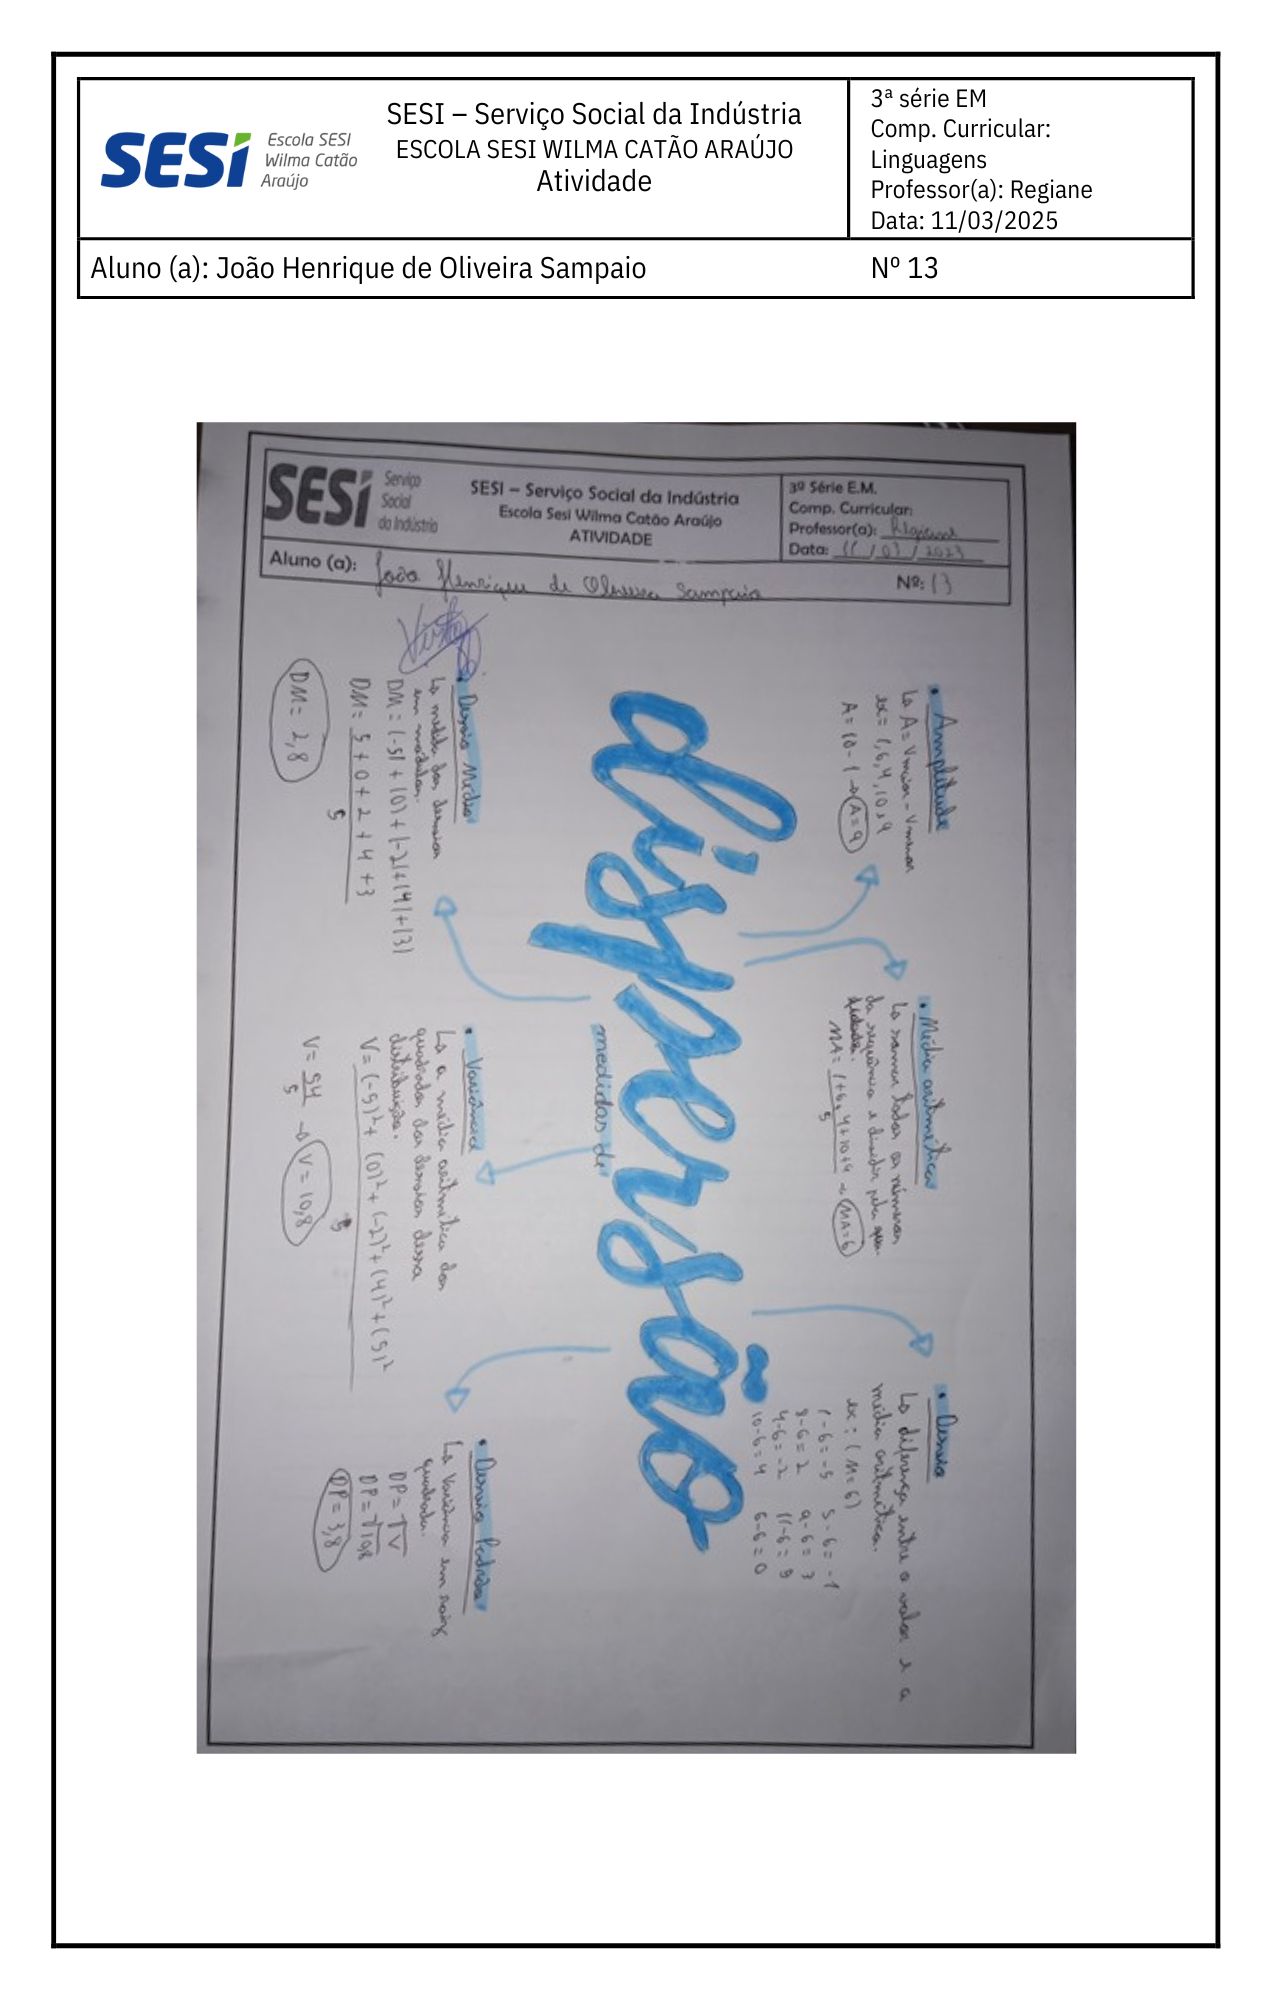 SESI
Escola SESI
Wilma Catão
Araújo
SESI – Serviço Social da Indústria
ESCOLA SESI WILMA CATÃO ARAÚJO
Atividade
3ª série EM
Comp. Curricular:
Linguagens
Professor(a): Regiane
Data: 11/03/2025
Aluno (a): João Henrique de Oliveira Sampaio
Nº 13
SESI
Serviço
Social
da Indústria
SESI – Serviço Social da Indústria
Escola Sesi Wilma Catão Araújo
ATIVIDADE
3º Série E.M.
Comp. Curricular:
Professor(a): Regiane
Data: 11 / 03 / 2025
Aluno (a): João Henrique de Oliveira Sampaio
Nº: 13
• Amplitude
↳ A = Vmaior - Vmenor
ex = 1, 6, 4, 10, 9
A = 10 - 1 → A = 9
• Média aritmética
↳ somar todos os números
da sequência e dividir pela quan-
tidade.
MA = 1+6+4+10+9 → MA=6
5
• Desvio
↳ diferença entre o valor e a
média aritmética.
ex: (M=6)
1-6=-5 5-6=-1
8-6=2 9-6=3
4-6=-2 11-6=5
10-6=4 6-6=0
medidas de
dispersão
• Desvio Médio
↳ média dos desvios
em módulos.
DM = |-5| + |0| + |-2| + |4| + |3|
DM = 5 + 0 + 2 + 4 + 3
5
DM = 2,8
• Variância
↳ a média aritmética dos
quadrados dos desvios dessa
distribuição.
V = (-5)² + (0)² + (-2)² + (4)² + (3)²
5
V = 54
5
→ V = 10,8
• Desvio Padrão
↳ Variância em raiz
quadrada.
DP = √V
DP = √10,8
DP = 3,8